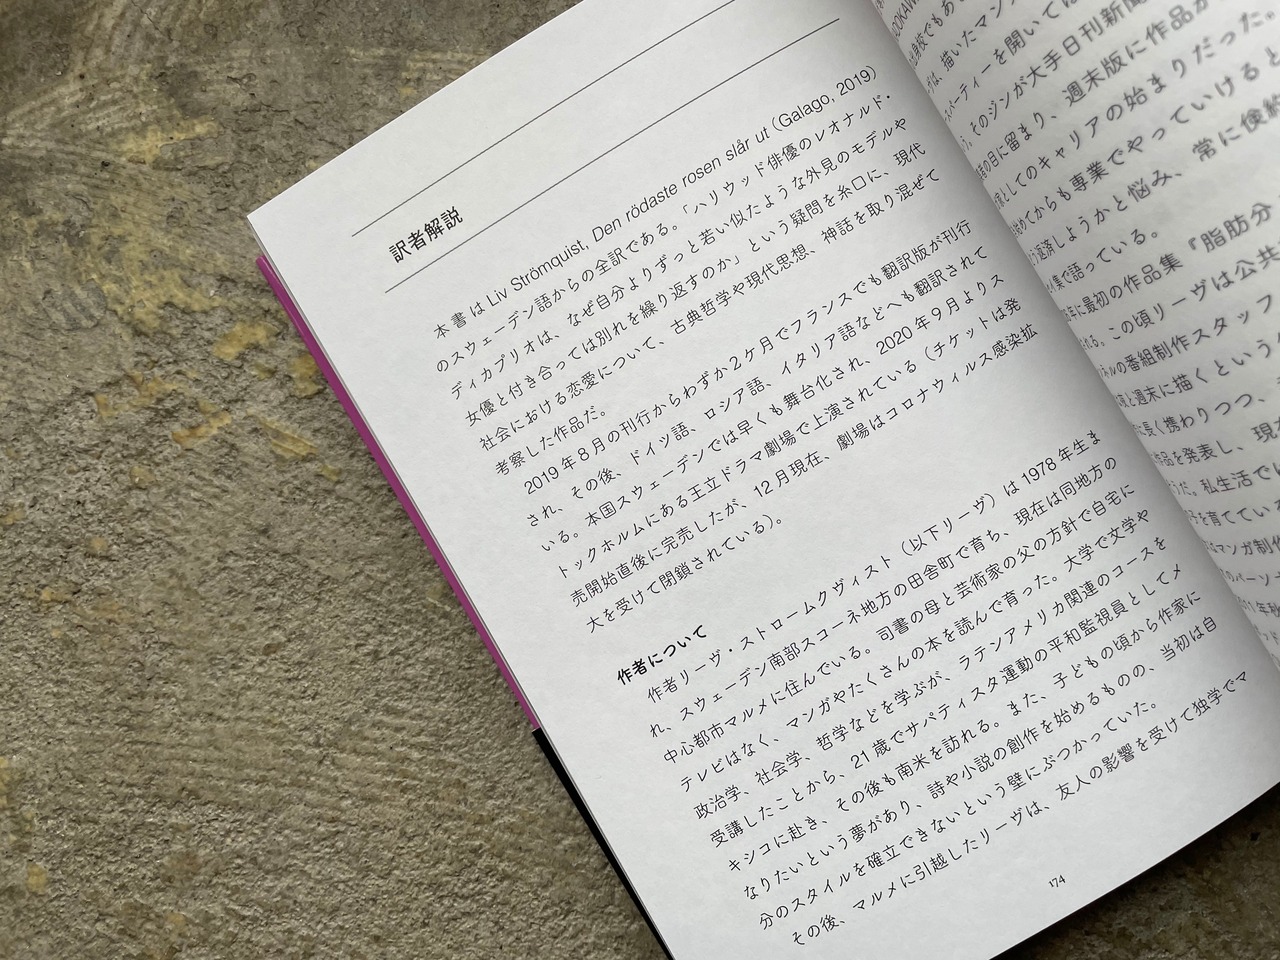 訳者解説
本書は Liv Strömquist, Den rödaste rosen slår ut (Galago, 2019)
のスウェーデン語からの全訳である。「ハリウッド俳優のレオナルド・
ディカプリオは、なぜ自分よりずっと若い似たような外見のモデルや
女優と付き合っては別れを繰り返すのか」という疑問を糸口に、現代
社会における恋愛について、古典哲学や現代思想、神話を取り混ぜて
考察した作品だ。
2019年8月の刊行からわずか2ケ月でフランスでも翻訳版が刊行
され、その後、ドイツ語、ロシア語、イタリア語などへも翻訳されて
いる。本国スウェーデンでは早くも舞台化され、2020年9月よりス
トックホルムにある王立ドラマ劇場で上演されている（チケットは発
売開始直後に完売したが、12月現在、劇場はコロナウィルス感染拡
大を受けて閉鎖されている）。
作者について
作者リーヴ・ストロームクヴィスト（以下リーヴ）は1978年生ま
れ、スウェーデン南部スコーネ地方の田舎町で育ち、現在は同地方の
中心都市マルメに住んでいる。司書の母と芸術家の父の方針で自宅に
テレビはなく、マンガやたくさんの本を読んで育った。大学で文学や
政治学、社会学、哲学などを学ぶが、ラテンアメリカ関連のコースを
受講したことから、21歳でサパティスタ運動の平和監視員としてメ
キシコに赴き、その後も南米を訪れる。また、子どもの頃から作家に
なりたいという夢があり、詩や小説の創作を始めるものの、当初は自
分のスタイルを確立できないという壁にぶつかっていた。
その後、マルメに引越したリーヴは、友人の影響を受けて独学でマ
174
は、描いたマン
パーティーを開いては
そのジンが大手日刊新聞
の目に留まり、週末版に作品が
としてのキャリアの始まりだった。
始めてからも専業でやっていけると
返済しようかと悩み、常に倹約
集で語っている。
年に最初の作品集『脂肪分
この頃リーヴは公共
の番組制作スタッフ
と週末に描くという
に長く携わりつつ、
作品を発表し、現在
うだ。私生活では
子を育てている
マンガ制作